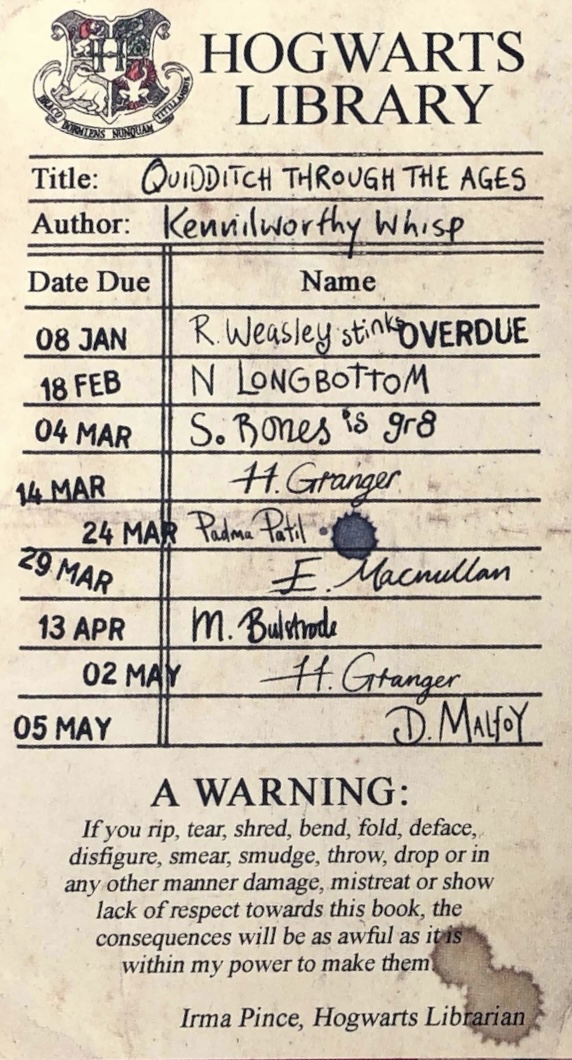 HOGWARTS
LIBRARY
DRACO DORMIENS NUNQUAM TITILLANDUS
Title: QUIDDITCH THROUGH THE AGES
Author: Kennilworthy Whisp
Date Due Name
08 JAN R. Weasley stinks OVERDUE
18 FEB N LONGBOTTOM
04 MAR S. Bones is gr8
14 MAR H. Granger
24 MAR Padma Patil
29 MAR E. Macmillan
13 APR M. Bulstrode
02 MAY H. Granger
05 MAY D. MALFOY
A WARNING:
If you rip, tear, shred, bend, fold, deface,
disfigure, smear, smudge, throw, drop or in
any other manner damage, mistreat or show
lack of respect towards this book, the
consequences will be as awful as it is
within my power to make them.
Irma Pince, Hogwarts Librarian